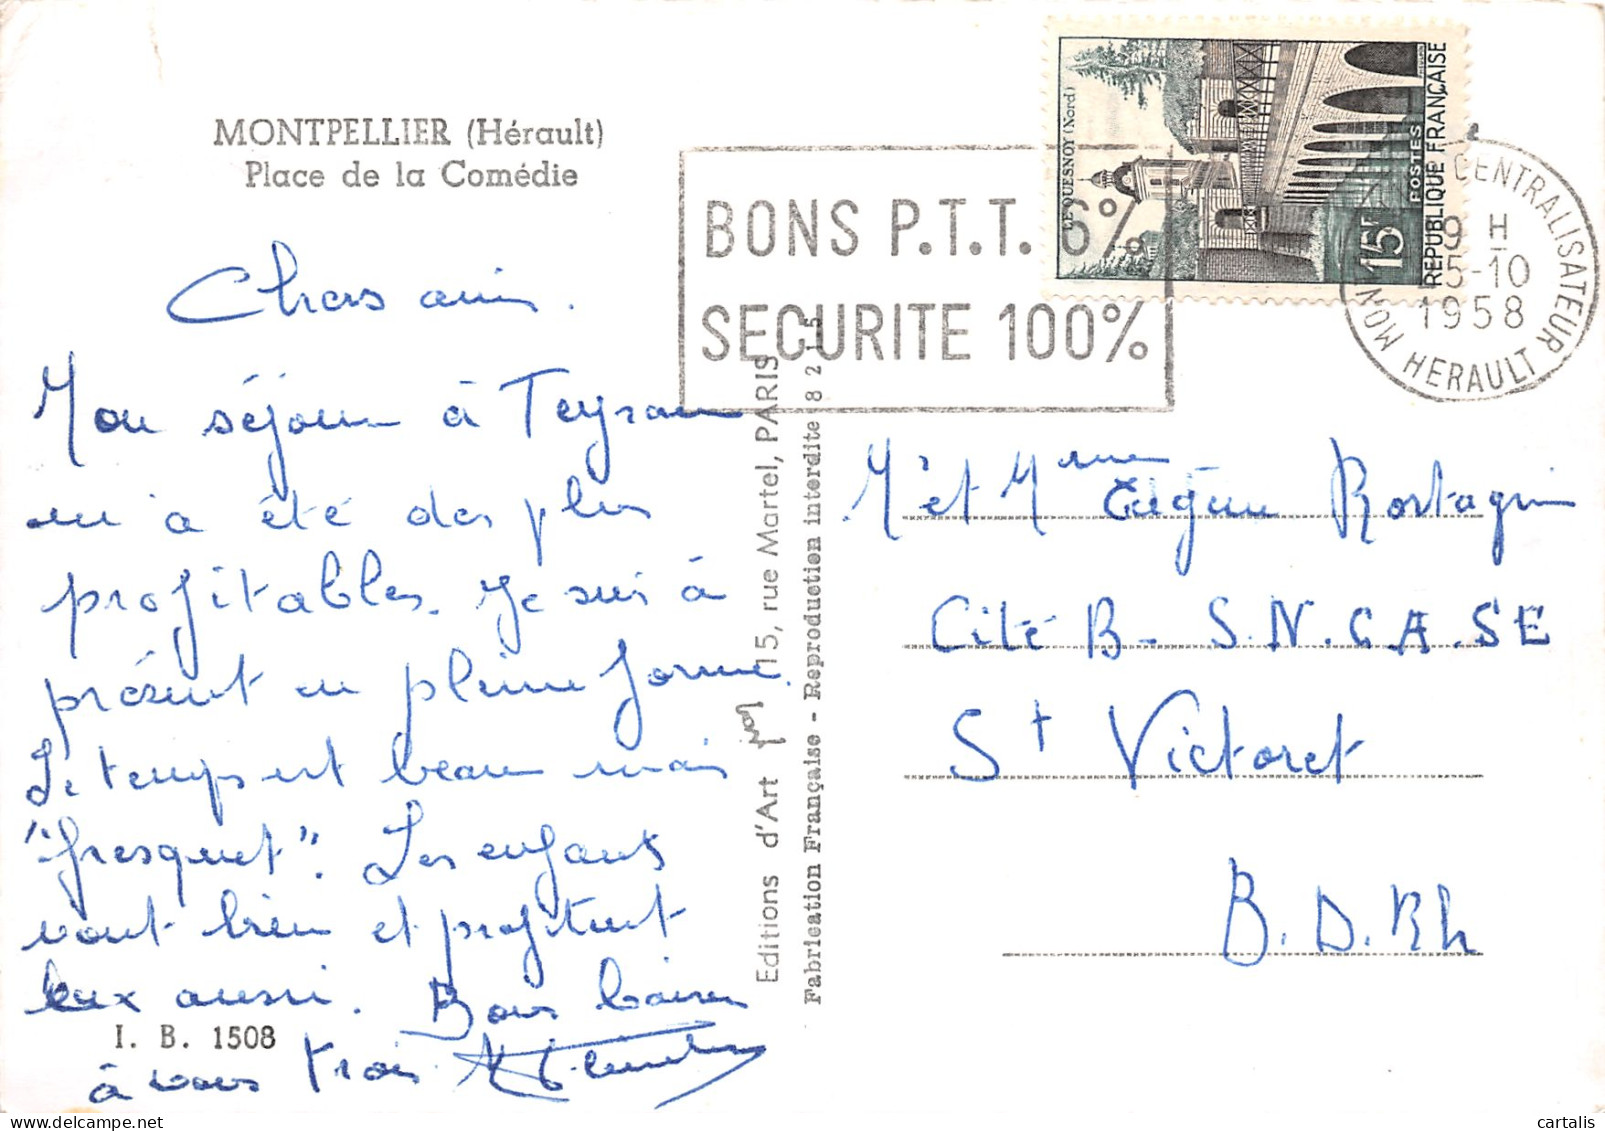 MONTPELLIER (Hérault)
Place de la Comédie
Chers amis.
Mon séjour à Teyran
m'a été des plus
profitables. Je suis à
présent en pleine forme.
Le temps est beau mais
"fresquet". Les enfants
vont bien et profitent
eux aussi. Bons baisers
à vous trois.
I. B. 1508
Editions d'Art 15, rue Martel, PARIS
Fabrication Française - Reproduction interdite 8 2 15
BONS P.T.T. 6%
SECURITE 100%
LE QUESNOY (Nord)
15F
POSTES
REPUBLIQUE FRANÇAISE
CENTRALISATEUR
HERAULT
9 H
5-10
1958
Mr et Mme Eugène Rostagni
Cité B - S.N.C.A.SE
St Victoret
B.D.Rh
cartalis